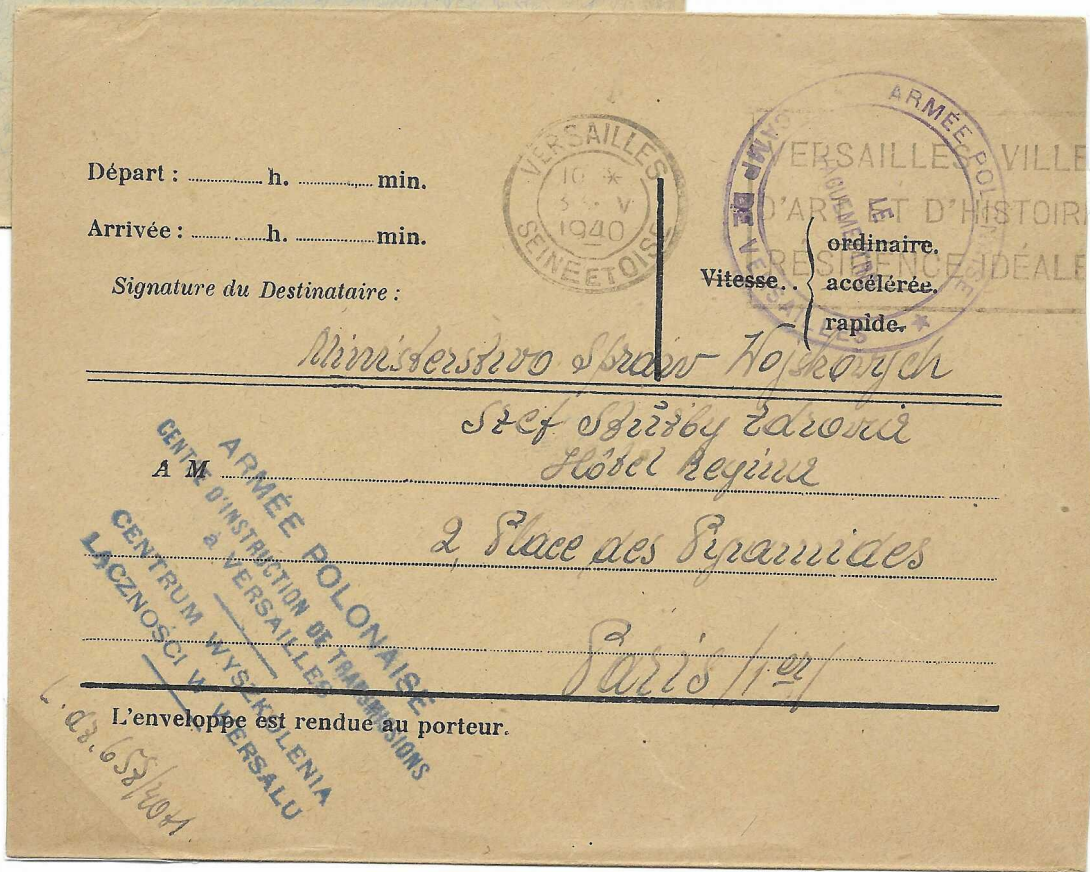 Départ : h. min.
Arrivée : h. min.
Signature du Destinataire :
VERSAILLES
10 *
V
1940
SEINE ET OISE
VERSAILLES VILLE
D'ART ET D'HISTOIR
RÉSIDENCE IDÉALE
ARMÉE POLONAISE
CAMP DE VERSAILLES
LE
VAGUEMESTRE
Vitesse..
ordinaire.
accélérée.
rapide.
Ministerstwo Spraw Wojskowych
Szef Służby Zdrowia
A M Hôtel Regina
2, Place des Pyramides
Paris /1er/
ARMÉE POLONAISE
CENTRE D'INSTRUCTION DE TRANSMISSIONS
à VERSAILLES
CENTRUM WYSZKOLENIA
ŁĄCZNOŚCI W WERSALU
L'enveloppe est rendue au porteur.
L. dz. 658/40